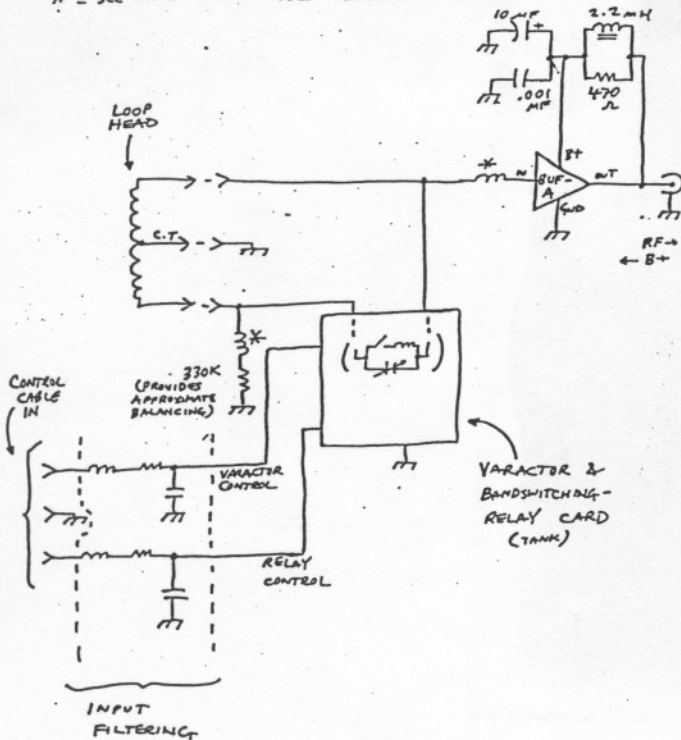 * = SEE
10 MF +
2.2 MH
.001 MF
470 Ω
LOOP HEAD
C.T.
*
IN
B+
BUF-A
OUT
GND
RF→
← B+
*
330K
(PROVIDES APPROXIMATE BALANCING)
CONTROL CABLE IN
VARACTOR CONTROL
RELAY CONTROL
VARACTOR &
BANDSWITCHING-
RELAY CARD
(TANK)
INPUT
FILTERING